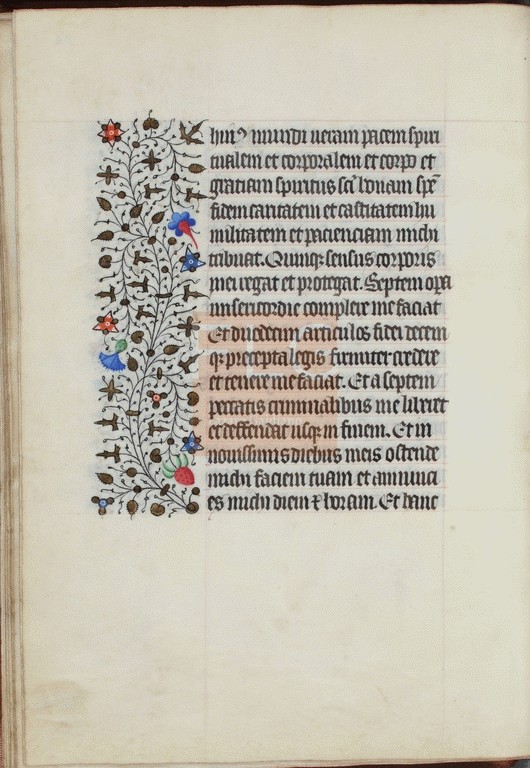 huiꝰ mundi ueram pacem spiri
tualem et corporalem et corpo et
gratiam spiritus scī bonam spē
fidem caritatem et castitatem hu
militatem et pacienciam michi
tribuat. Quinqꝫ sensus corporis
mei regat et protegat. Septem opa
misericordie complere me faciat
Et duodecim articulos fidei decem
qꝫ precepta legis firmiter credere
et tenere me faciat. Et a septem
peccatis criminalibus me liberet
et deffendat usqꝫ in finem. Et in
nouissimis diebus meis ostende
michi faciem tuam et annunci
es michi diem ⁊ horam. Et hanc